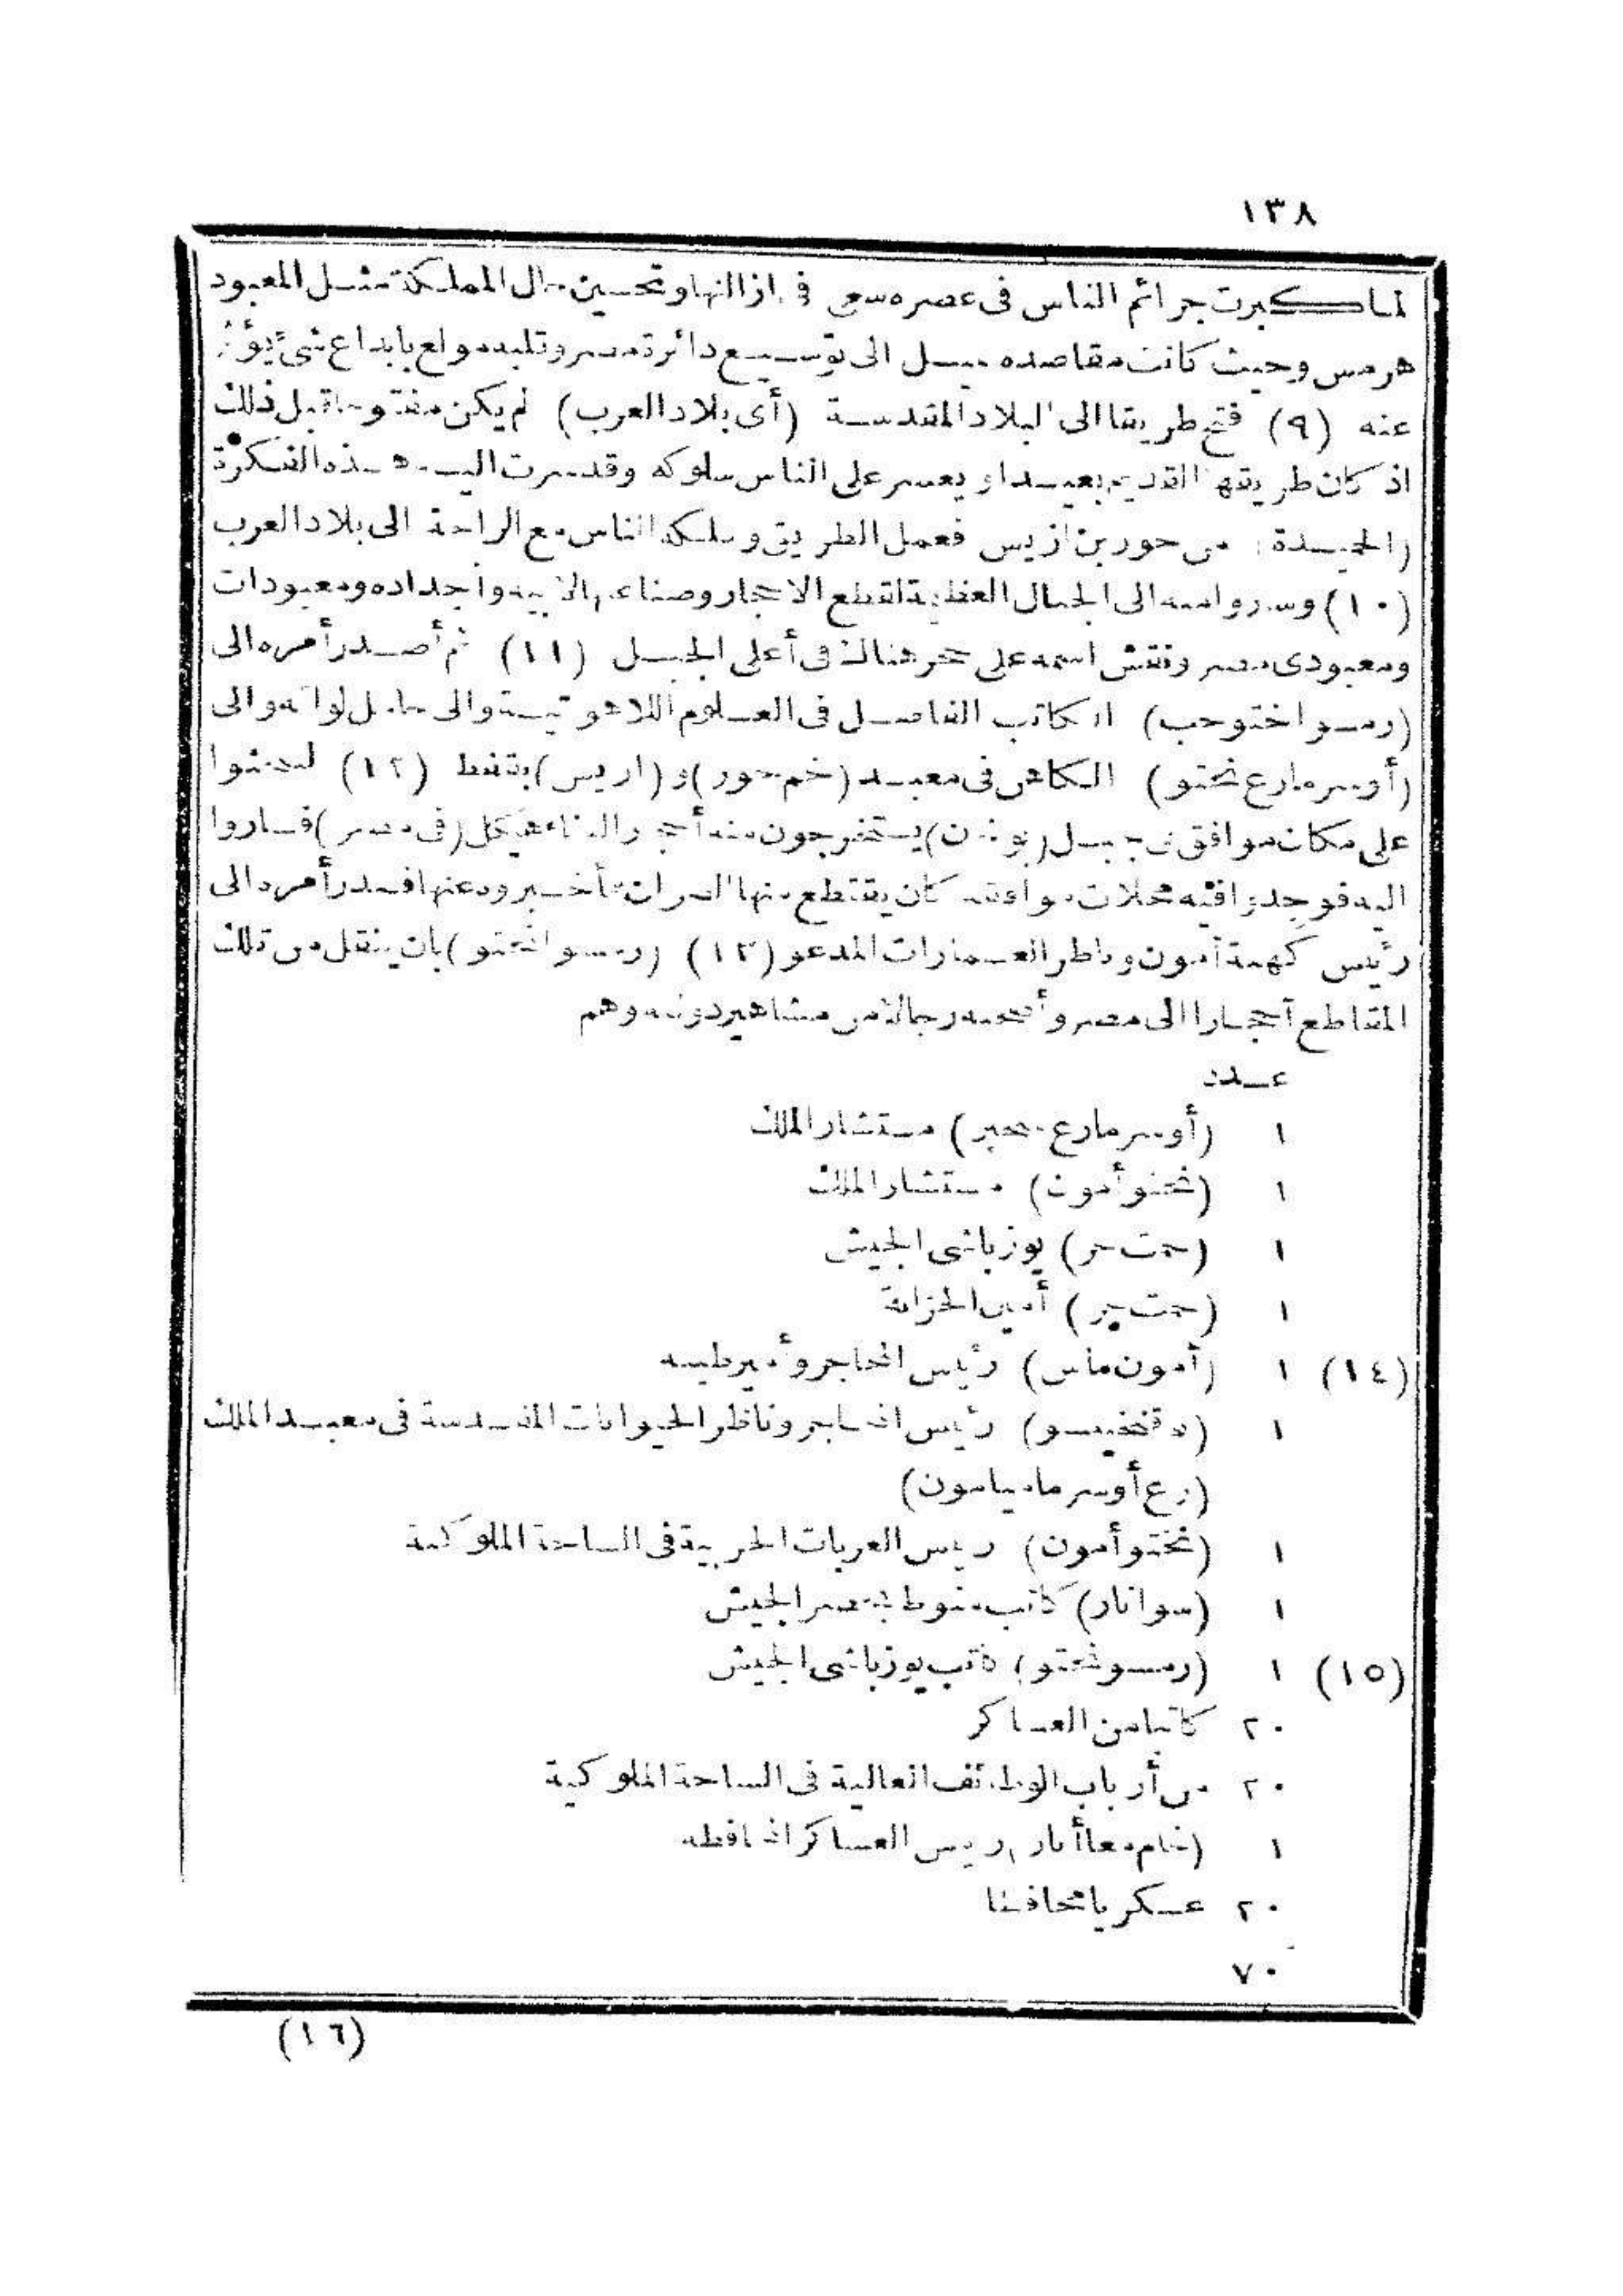 ١٣٨
لما كبرت جرائم الناس فى عصره سعى فى ازالتها وتحسين حال المملكة مثل المعبود
هرمس وحيث كانت مقاصده تميل الى توسيع دائرة مصر وقلبه مولع بابداع شئ يؤثر
عنه (٩) فتح طريقا الى البلاد المقدسة (أى بلاد العرب) لم يكن مفتوحا قبل ذلك
اذ كان طريقها القديم بعيدا ويعسر على الناس سلوكه وقد سرت اليه هذه الفكرة
الحميدة من حور بن ازيس فعمل الطريق وسلكه الناس مع الراحة الى بلاد العرب
(١٠) الى الجبال العظيمة لقطع الاحجار لابيه وأجداده ومعبودات
ومعبودى مصر ونقش اسمه على حجر هناك فى أعلى الجبل (١١) ثم أصدر أمره الى
(رمسو اختوحب) الكاتب الفاضل فى العلوم اللاهوتية والى حامل لوائه والى
(أوسرمارع نختو) الكاهن فى معبد (خم حور) و(ازيس) بقفط (١٢) ليبحثوا
على مكان موافق فى جبل يستخرجون منه أحجارا لبناء هيكل (فى مصر) فساروا
اليه فوجدوا فيه محلات موافقة كان يقتطع منها فأخبروه عنها فصدر أمره الى
رئيس كهنة آمون وناظر العمارات المدعو (١٣) (رمسو نختو) بان ينقل من تلك
المقاطع أحجارا الى مصر وأصحبه رجالا من مشاهير دولته وهم
عدد
١ (أوسرمارع سخبر) مستشار الملك
١ (نختو أمون) مستشار الملك
١ يوزباشى الجيش
١ أمين الخزانة
(١٤) ١ (آمون ماس) رئيس المحاجر وأمير طيبه
١ رئيس المحاجر وناظر الحيوانات المقدسة فى معبد الملك
(رع أوسر ما ميامون)
١ (نختو أمون) رئيس العربات الحربية فى الساحة الملوكية
١ (سوانار) كاتب منوط بحصر الجيش
(١٥) ١ (رمسو نختو) كاتب يوزباشى الجيش
٢٠ كاتبا من العساكر
٢٠ من أرباب الوظائف العالية فى الساحة الملوكية
١ رئيس العساكر المحافظه
٢٠ عسكريا محافظا
٧٠
(١٦)